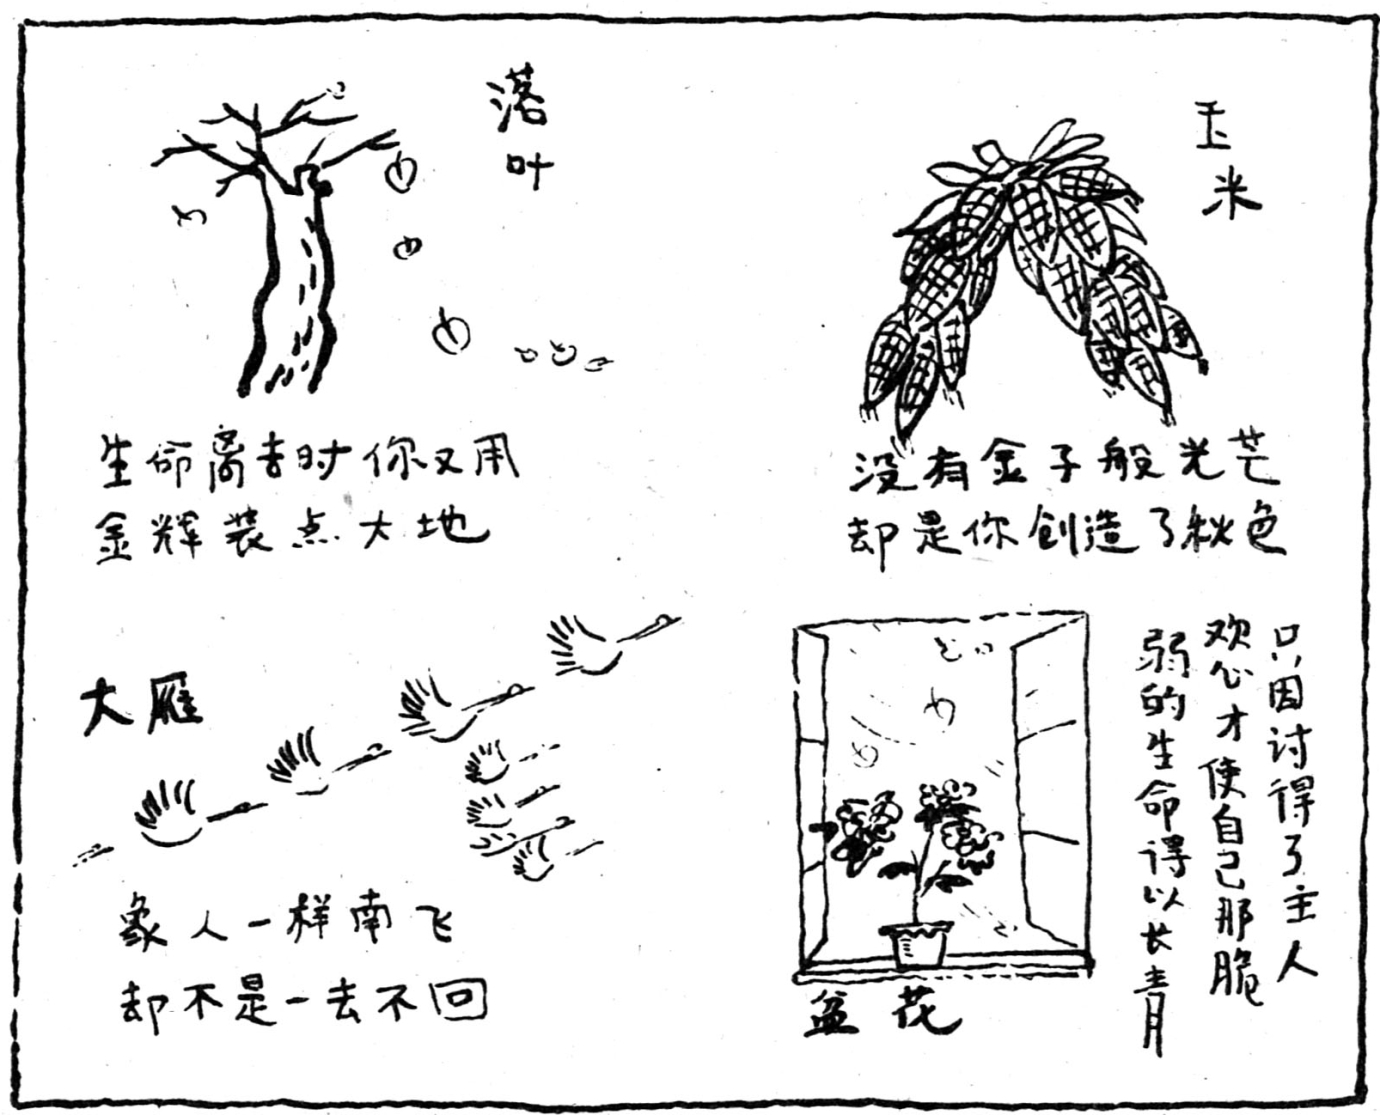 落叶
生命离去时你又用
金辉装点大地
玉米
没有金子般光芒
却是你创造了秋色
大雁
象人一样南飞
却不是一去不回
只因讨得了主人
欢心才使自己那脆
弱的生命得以长青
盆花